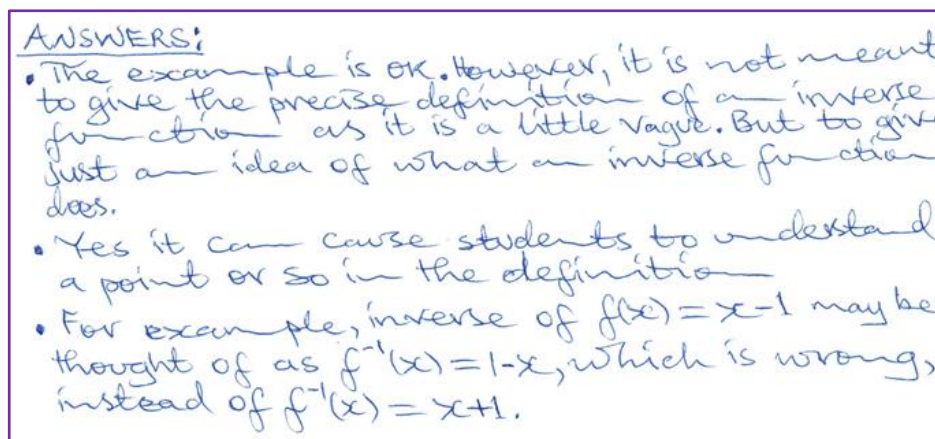 ANSWERS:
• The example is ok. However, it is not meant
to give the precise definition of an inverse
function as it is a little vague. But to give
just an idea of what an inverse function
does.
• Yes it can cause students to understand
a point or so in the definition
• For example, inverse of f(x) = x-1 may be
thought of as f⁻¹(x) = 1-x, which is wrong,
instead of f⁻¹(x) = x+1.